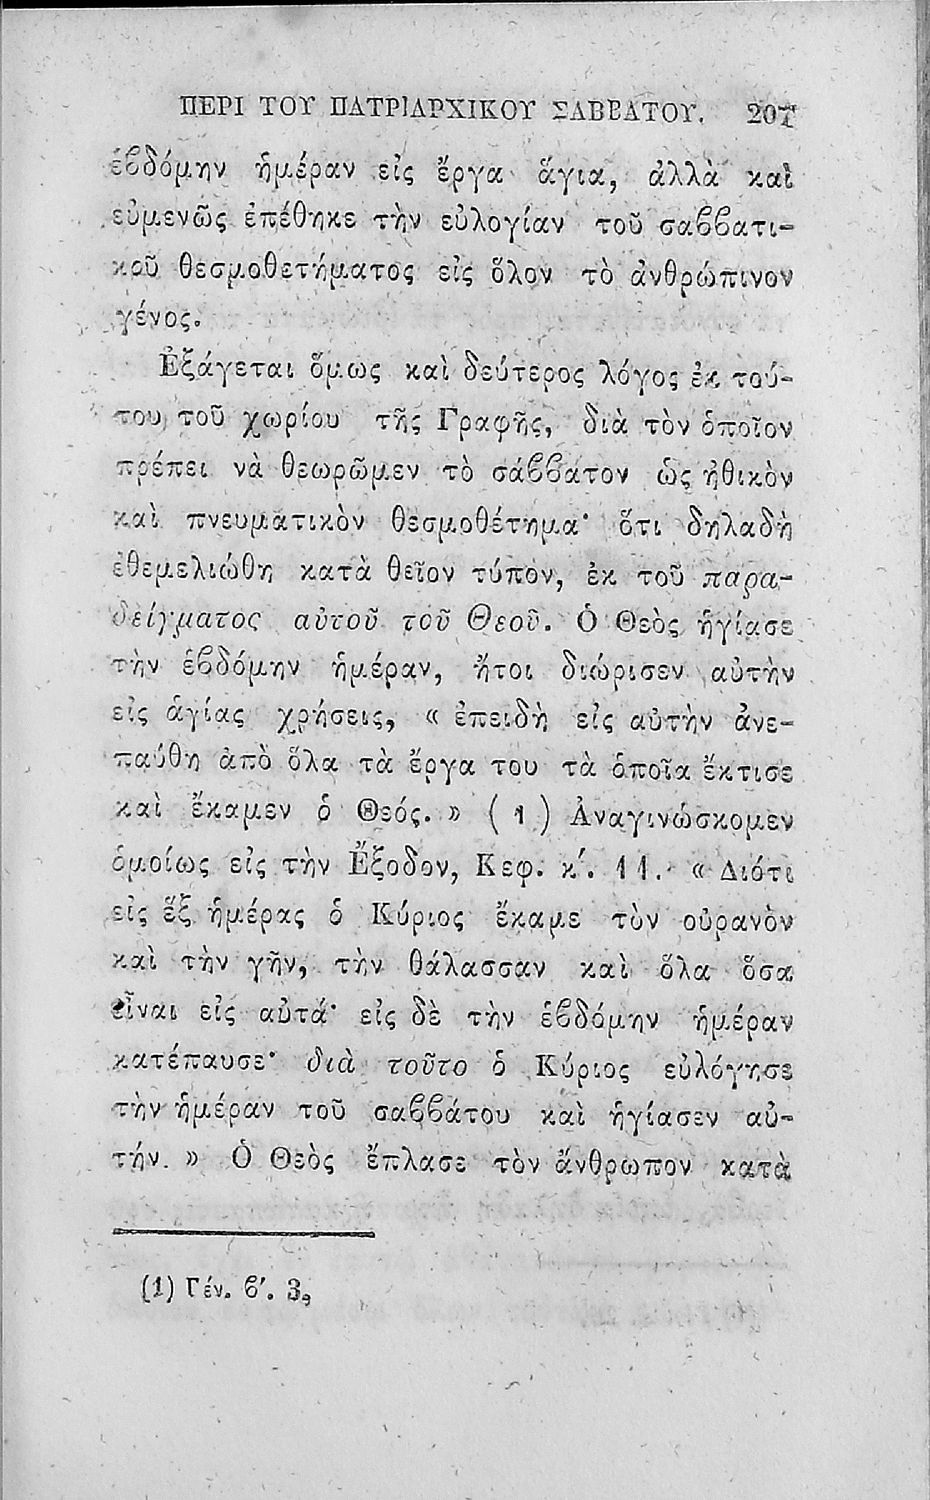 ΠΕΡΙ ΤΟΥ ΠΑΤΡΙΑΡΧΙΚΟΥ ΣΑΒΒΑΤΟΥ. 207
ἑβδόμην ἡμέραν εἰς ἔργα ἅγια, ἀλλὰ καὶ
εὐμενῶς ἐπέθηκε τὴν εὐλογίαν τοῦ σαββατι-
κοῦ θεσμοθετήματος εἰς ὅλον τὸ ἀνθρώπινον
γένος.
Ἐξάγεται ὅμως καὶ δεύτερος λόγος ἐκ τού-
του τοῦ χωρίου τῆς Γραφῆς, διὰ τὸν ὁποῖον
πρέπει νὰ θεωρῶμεν τὸ σάββατον ὡς ἠθικὸν
καὶ πνευματικὸν θεσμοθέτημα· ὅτι δηλαδὴ
ἐθεμελιώθη κατὰ θεῖον τύπον, ἐκ τοῦ παρα-
δείγματος αὐτοῦ τοῦ Θεοῦ. Ὁ Θεὸς ἡγίασε
τὴν ἑβδόμην ἡμέραν, ἤτοι διώρισεν αὐτὴν
εἰς ἁγίας χρήσεις, « ἐπειδὴ εἰς αὐτὴν ἀνε-
παύθη ἀπὸ ὅλα τὰ ἔργα του τὰ ὁποῖα ἔκτισε
καὶ ἔκαμεν ὁ Θεός. » ( 1 ) Ἀναγινώσκομεν
ὁμοίως εἰς τὴν Ἔξοδον, Κεφ. κ΄. 11. « Διότι
εἰς ἓξ ἡμέρας ὁ Κύριος ἔκαμε τὸν οὐρανὸν
καὶ τὴν γῆν, τὴν θάλασσαν καὶ ὅλα ὅσα
εἶναι εἰς αὐτά· εἰς δὲ τὴν ἑβδόμην ἡμέραν
κατέπαυσε· διὰ τοῦτο ὁ Κύριος εὐλόγησε
τὴν ἡμέραν τοῦ σαββάτου καὶ ἡγίασεν αὐ-
τήν. » Ὁ Θεὸς ἔπλασε τὸν ἄνθρωπον κατὰ
(1) Γέν. β΄. 3,